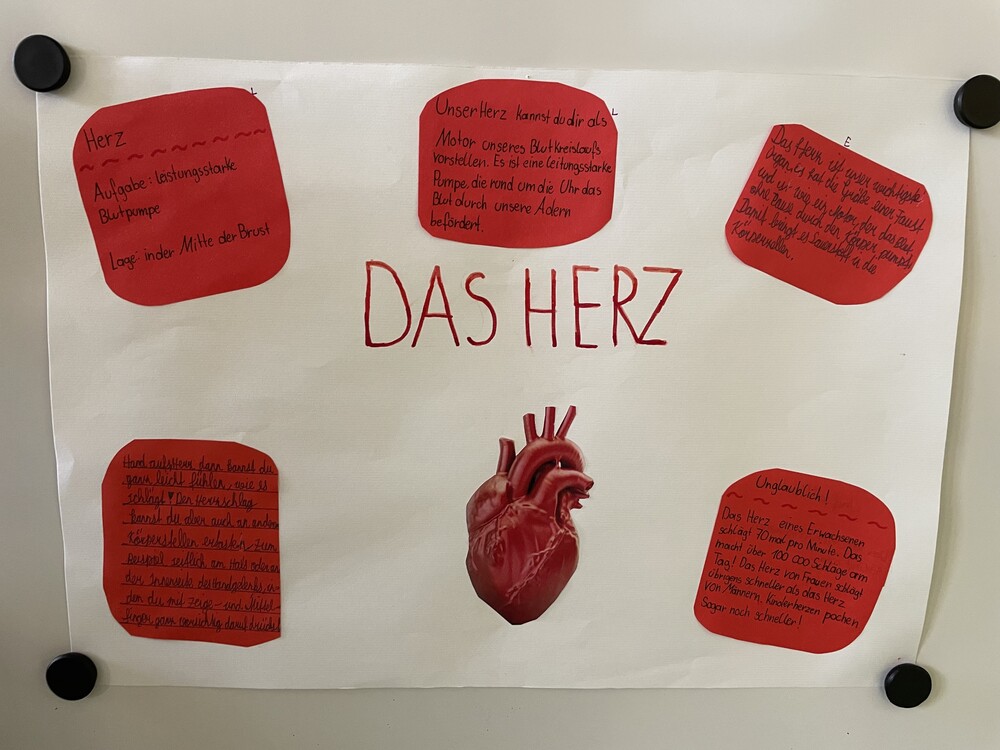 Herz
Aufgabe: leistungsstarke
Blutpumpe
Lage: in der Mitte der Brust
L
Unser Herz kannst du dir als
Motor unseres Blutkreislaufs
vorstellen. Es ist eine leitungsstarke
Pumpe, die rund um die Uhr das
Blut durch unsere Adern
befördert.
L
E
Das Herz ist unser wichtigstes
organ. Es hat die Größe einer Faust
und ist wie ein Motor, der das Blut
ohne Pause durch den Körper pumpt.
Damit bringt es Sauerstoff in die
Körperzellen.
DAS HERZ
Hand aufs Herz dann kannst du
ganz leicht fühlen, wie es
schlägt ♥ Den
kannst du aber auch an anderen
Körperstellen ertasten zum
Beispiel seitlich am Hals oder an
der Innenseite des Handgelenks, in-
dem du mit Zeige- und Mittel-
finger ganz vorsichtig darauf drückst
Unglaublich!
Das Herz eines Erwachsenen
schlägt 70 mal pro Minute. Das
macht über 100 000 Schläge am
Tag! Das Herz von Frauen schlägt
übrigens schneller als das Herz
von Männern. Kinderherzen pochen
Sogar noch schneller!